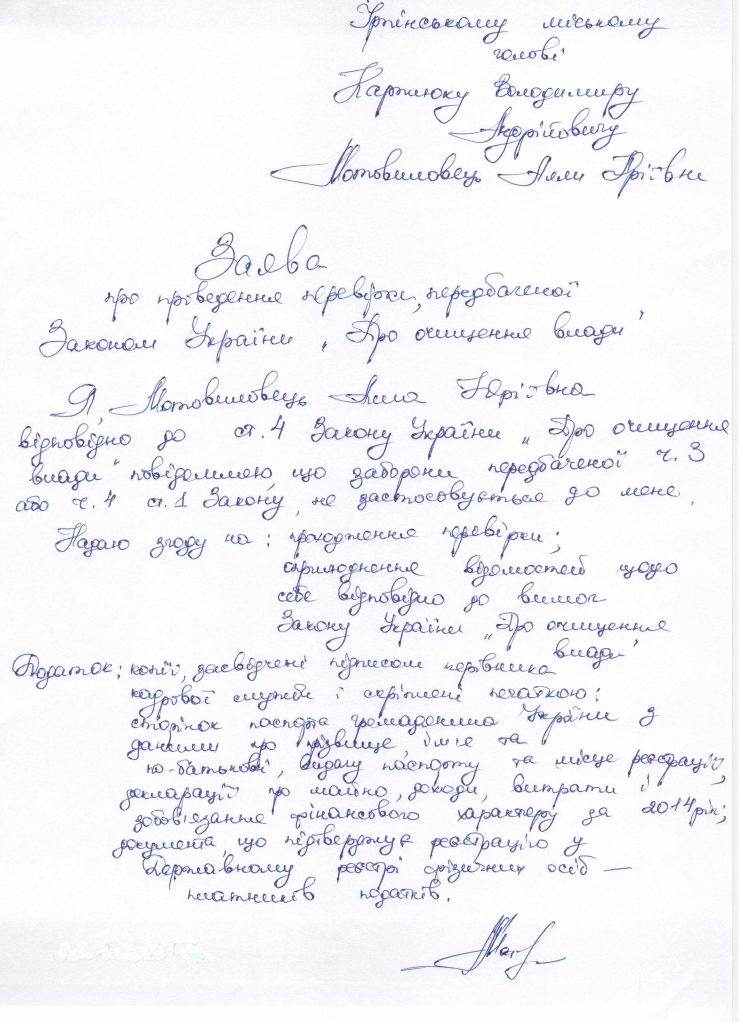 Ірпінському міському
голові
Карплюку Володимиру
Андрійовичу
Мотовиловець Лили Юріївни
Заява
про проведення перевірки, передбаченої
Законом України „Про очищення влади"
Я, Мотовиловець Лиля Юріївна
відповідно до ст. 4 Закону України „Про очищення
влади" повідомляю, що заборони передбаченої ч. 3
або ч. 4 ст. 1 Закону, не застосовується до мене.
Надаю згоду на: проходження перевірки;
оприлюднення відомостей щодо
себе відповідно до вимог
Закону України „Про очищення
влади"
Додаток: копії, засвідчені підписом керівника
кадрової служби і скріплені печаткою:
сторінок паспорта громадянина України з
даними про прізвище, ім'я та
по-батькові, видачу паспорту та місце реєстрації,
декларації про майно, доходи, витрати і
зобов'язання фінансового характеру за 2014 рік;
документа, що підтверджує реєстрацію у
Державному реєстрі фізичних осіб —
платників податків.